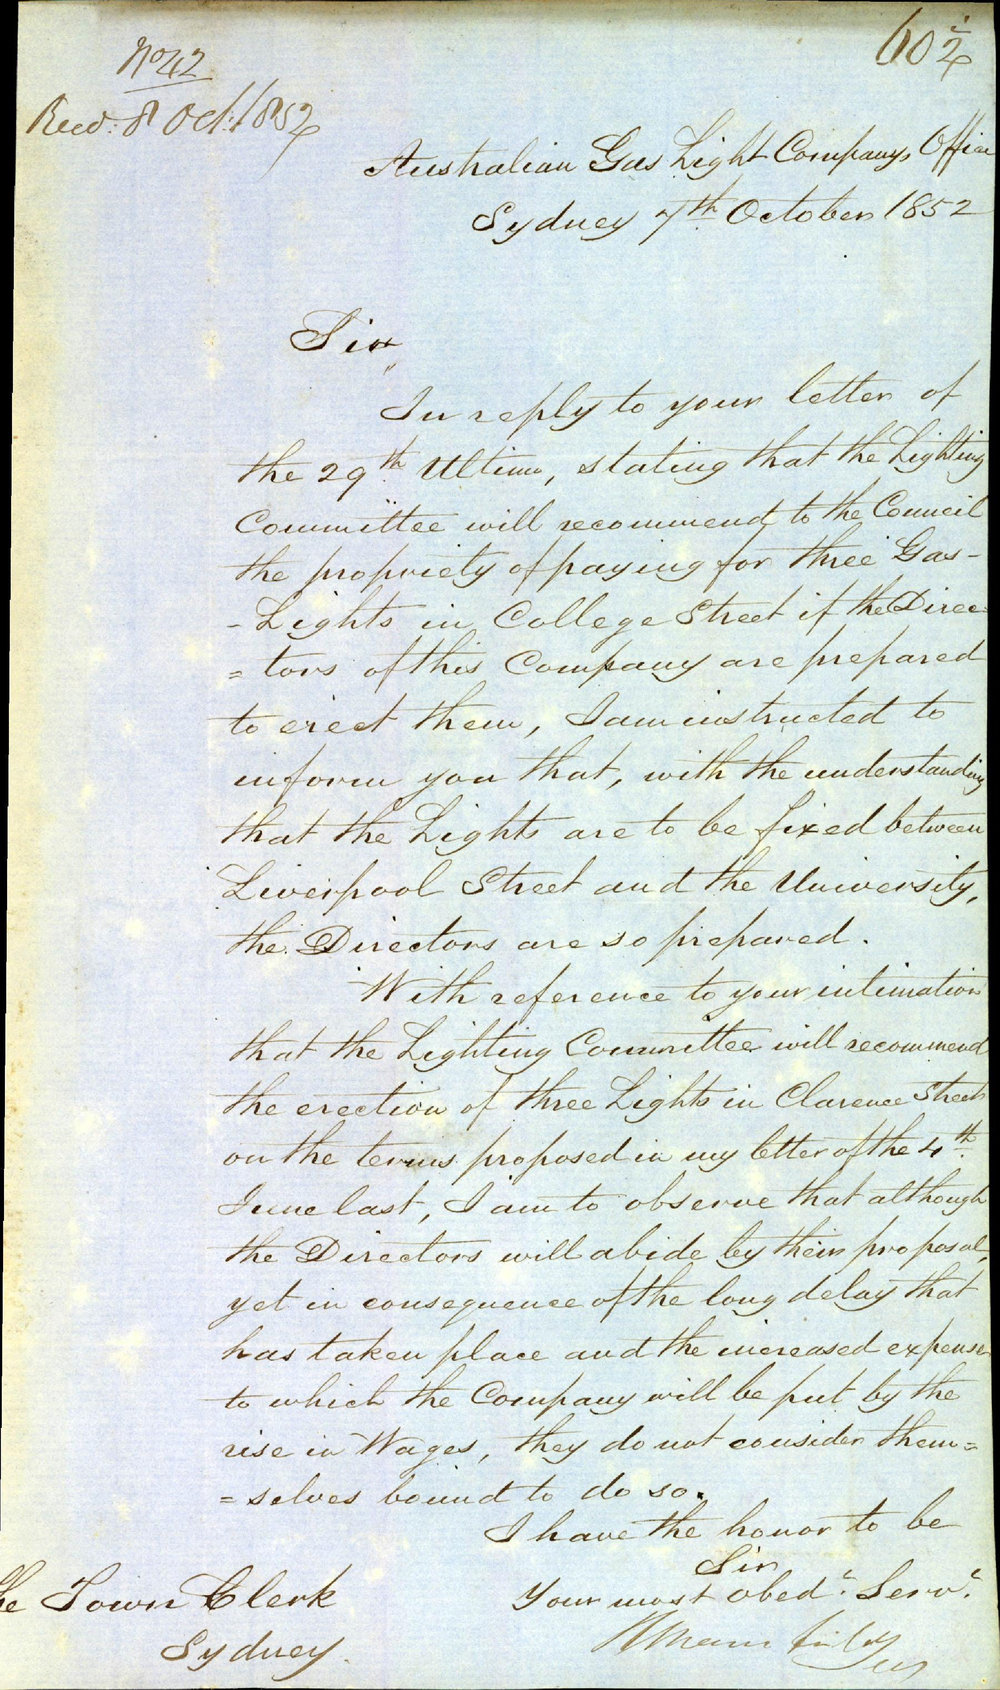 No 42
Recd. 8 Oct. 1852
602
Australian Gas Light Companys Office
Sydney 7th October 1852
Sir
In reply to your letter of
the 29th Ultimo, stating that the Lighting
Committee will recommend to the Council
the propriety of paying for three Gas-
-Lights in College Street if the Direc-
=tors of this Company are prepared
to erect them, I am instructed to
inform you that, with the understanding
that the Lights are to be fixed between
Liverpool Street and the University,
the Directors are so prepared.
With reference to your intimation
that the Lighting Committee will recommend
the erection of three Lights in Clarence Street
on the terms proposed in my letter of the 4th
June last, I am to observe that although
the Directors will abide by their proposal,
yet in consequence of the long delay that
has taken place and the increased expense
to which the Company will be put by the
rise in Wages, they do not consider them=
=selves bound to do so.
I have the honor to be
Sir
Your most obedt. Servt.
The Town Clerk
Sydney.